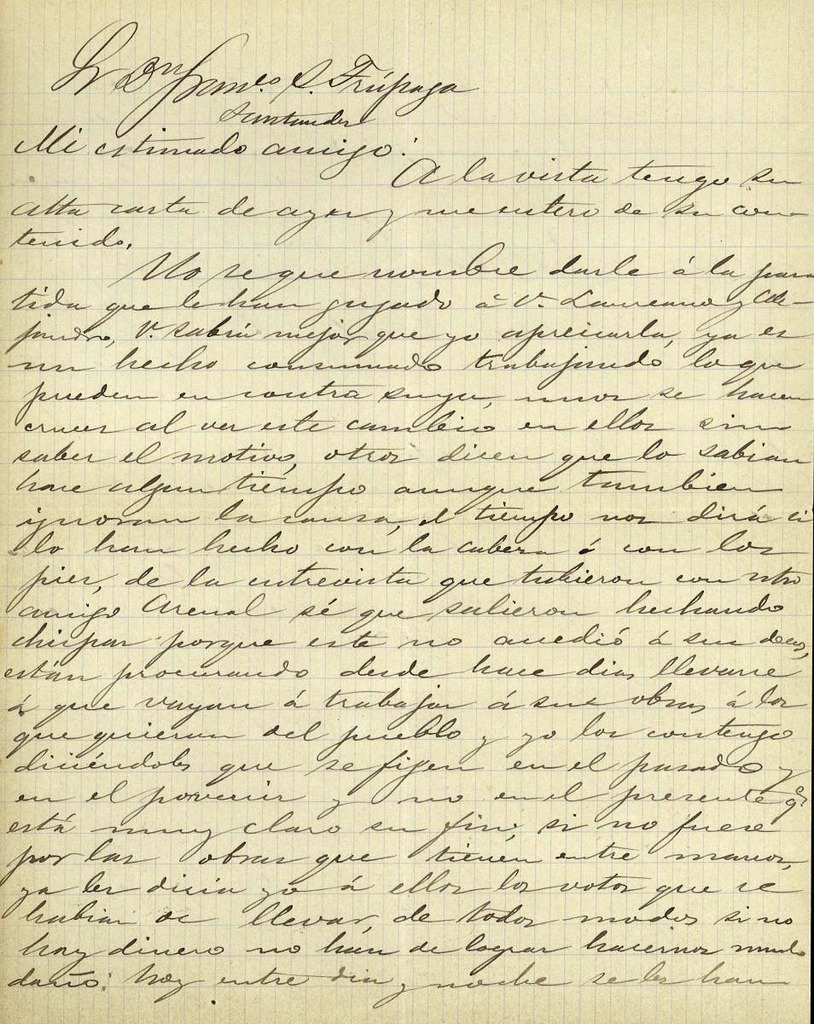 Sr Dn Franco. S. Trápaga
Santander
Mi estimado amigo:
A la vista tengo su
atta carta de ayer y me entero de su con-
tenido.
No se que nombre darle á la par
tida que le han jugado á V. Laureano y Ale-
jandro, V. sabrá mejor que yo apreicarla, ya es
un hecho consumado trabajando lo que
pueden en contra suya, unos se hacen
cruces al ver este cambio en ellos sin
saber el motivo, otros dicen que lo sabian
hace algun tiempo aunque tambien
ignoran la causa, el tiempo nos dirá si
lo han hecho con la cabeza ó con los
pies, de la entrevista que tubieron con ntro
amigo Arenal sé que salieron hechando
chispas porque este no accedió á sus deseos,
están procurando desde hace dias llevarse
á que vayan á trabajar á sus obras á los
que quieran del pueblo y yo los contengo
diciéndoles que se fijen en el pasado y
en el porvenir y no en el presente qe
está muy claro su fin, si no fuese
por las obras que tienen entre manos,
ya les diria yo á ellos los votos que se
habian de llevar, de todos modos si no
hay dinero no han de lograr hacernos mucho
daño: hoy entre dia y noche se les han